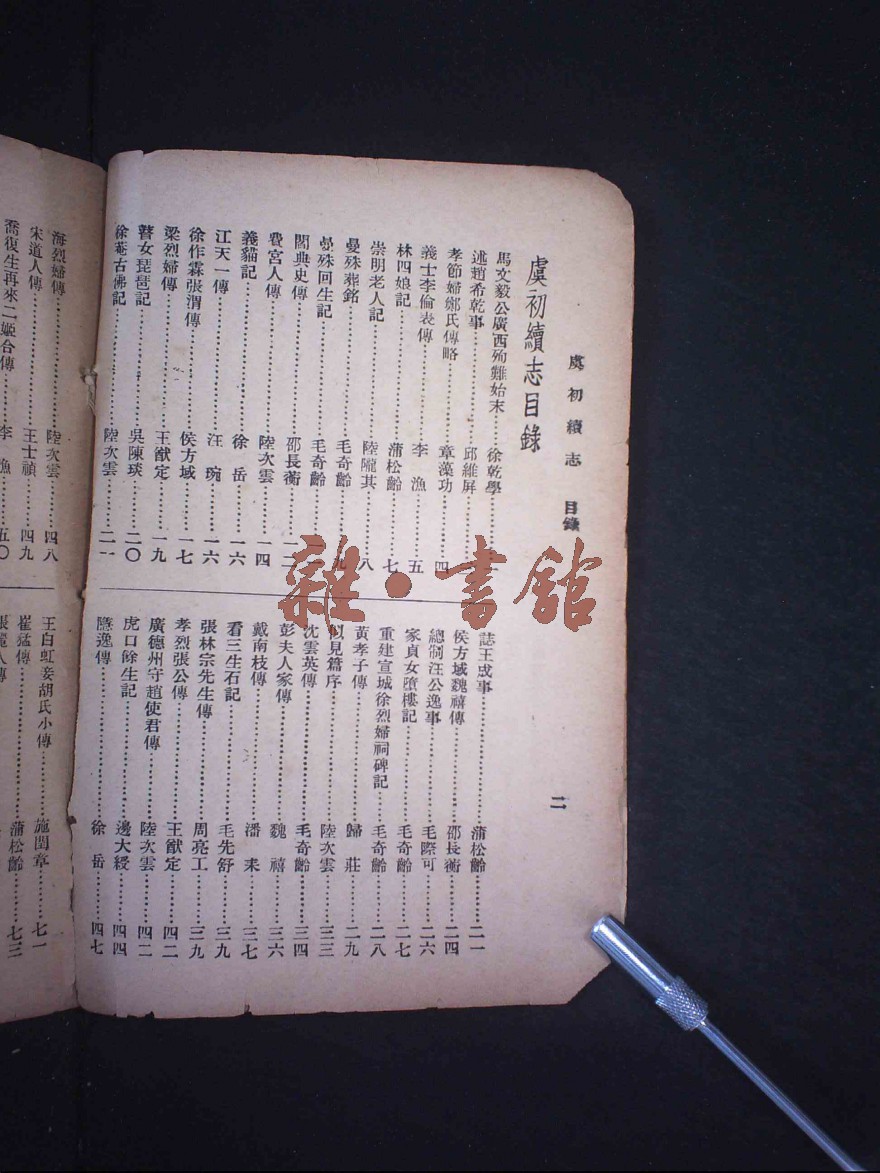 虞初續志 目錄
二
虞初續志目錄
馬文毅公廣西殉難始末……徐乾學
述趙希乾事……邱維屏
孝節婦鄭氏傳略……章藻功……四
義士李倫表傳……李漁……五
林四娘記……蒲松齡……七
崇明老人記……陸隴其……八
曼殊葬銘……毛奇齡……九
曼殊回生記……毛奇齡
閻典史傳……邵長蘅……一二
費宮人傳……陸次雲……一四
義貓記……徐岳……一六
江天一傳……汪琬……一六
徐作霖張渭傳……侯方域……一七
梁烈婦傳……王猷定……一九
瞽女琵琶記……吳陳琰……二〇
徐菴古佛記……陸次雲……二一
誌王成事……蒲松齡……二一
侯方域魏禧傳……邵長蘅……二四
總制汪公逸事……毛際可……二六
家貞女墮樓記……毛奇齡……二七
重建宣城徐烈婦祠碑記……毛奇齡……二八
黃孝子傳……歸莊……二九
似見篇序……陸次雲……三三
沈雲英傳……毛奇齡……三四
彭夫人家傳……魏禧……三六
戴南枝傳……潘耒……三七
看三生石記……毛先舒……三九
張林宗先生傳……周亮工……三九
孝烈張公傳……王猷定……四二
廣德州守趙使君傳……陸次雲……四二
虎口餘生記……邊大綬……四四
隱逸傳……徐岳……四七
海烈婦傳……陸次雲……四八
宋道人傳……王士禛……四九
喬復生再來二姬合傳……李漁……五〇
王白虹妾胡氏小傳……施閏章……七一
崔猛傳……蒲松齡……七三
張麗人傳
雜·書館